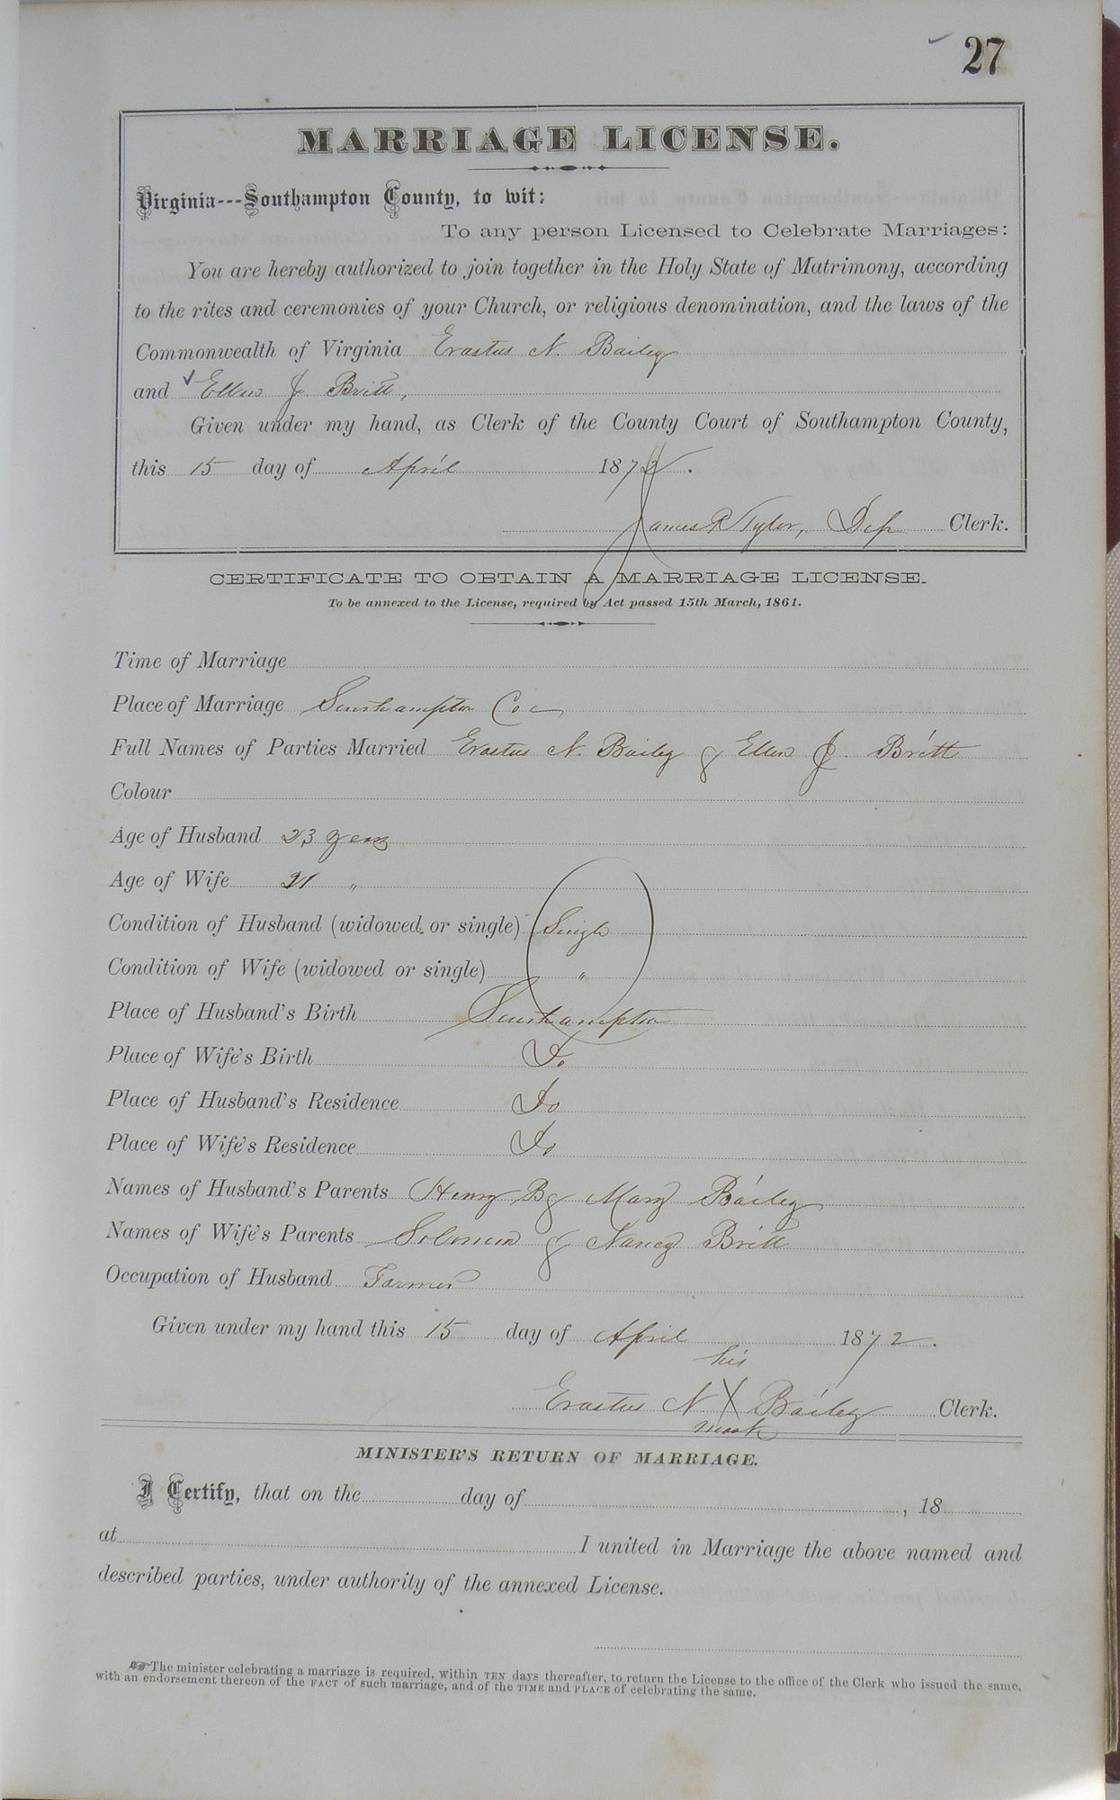 27
MARRIAGE LICENSE.
Virginia---Southampton County, to wit:
To any person Licensed to Celebrate Marriages:
You are hereby authorized to join together in the Holy State of Matrimony, according
to the rites and ceremonies of your Church, or religious denomination, and the laws of the
Commonwealth of Virginia Erastus N. Bailey
and Ellen J. Britt,
Given under my hand, as Clerk of the County Court of Southampton County,
this 15 day of April 1872.
James R Tyler, Dep Clerk.
CERTIFICATE TO OBTAIN A MARRIAGE LICENSE.
To be annexed to the License, required by Act passed 15th March, 1861.
Time of Marriage
Place of Marriage Southampton Co
Full Names of Parties Married Erastus N. Bailey & Ellen J. Britt
Colour
Age of Husband 23 years
Age of Wife 21 "
Condition of Husband (widowed or single) Single
Condition of Wife (widowed or single) "
Place of Husband's Birth Southampton
Place of Wife's Birth Do
Place of Husband's Residence Do
Place of Wife's Residence Do
Names of Husband's Parents Henry B & Mary Bailey
Names of Wife's Parents Solomon & Nancy Britt
Occupation of Husband Farmer
Given under my hand this 15 day of April 1872.
his
Erastus N. X Bailey Clerk.
mark
MINISTER'S RETURN OF MARRIAGE.
I Certify, that on the day of , 18
at I united in Marriage the above named and
described parties, under authority of the annexed License.
The minister celebrating a marriage is required, within TEN days thereafter, to return the License to the office of the Clerk who issued the same,
with an endorsement thereon of the FACT of such marriage, and of the TIME and PLACE of celebrating the same.